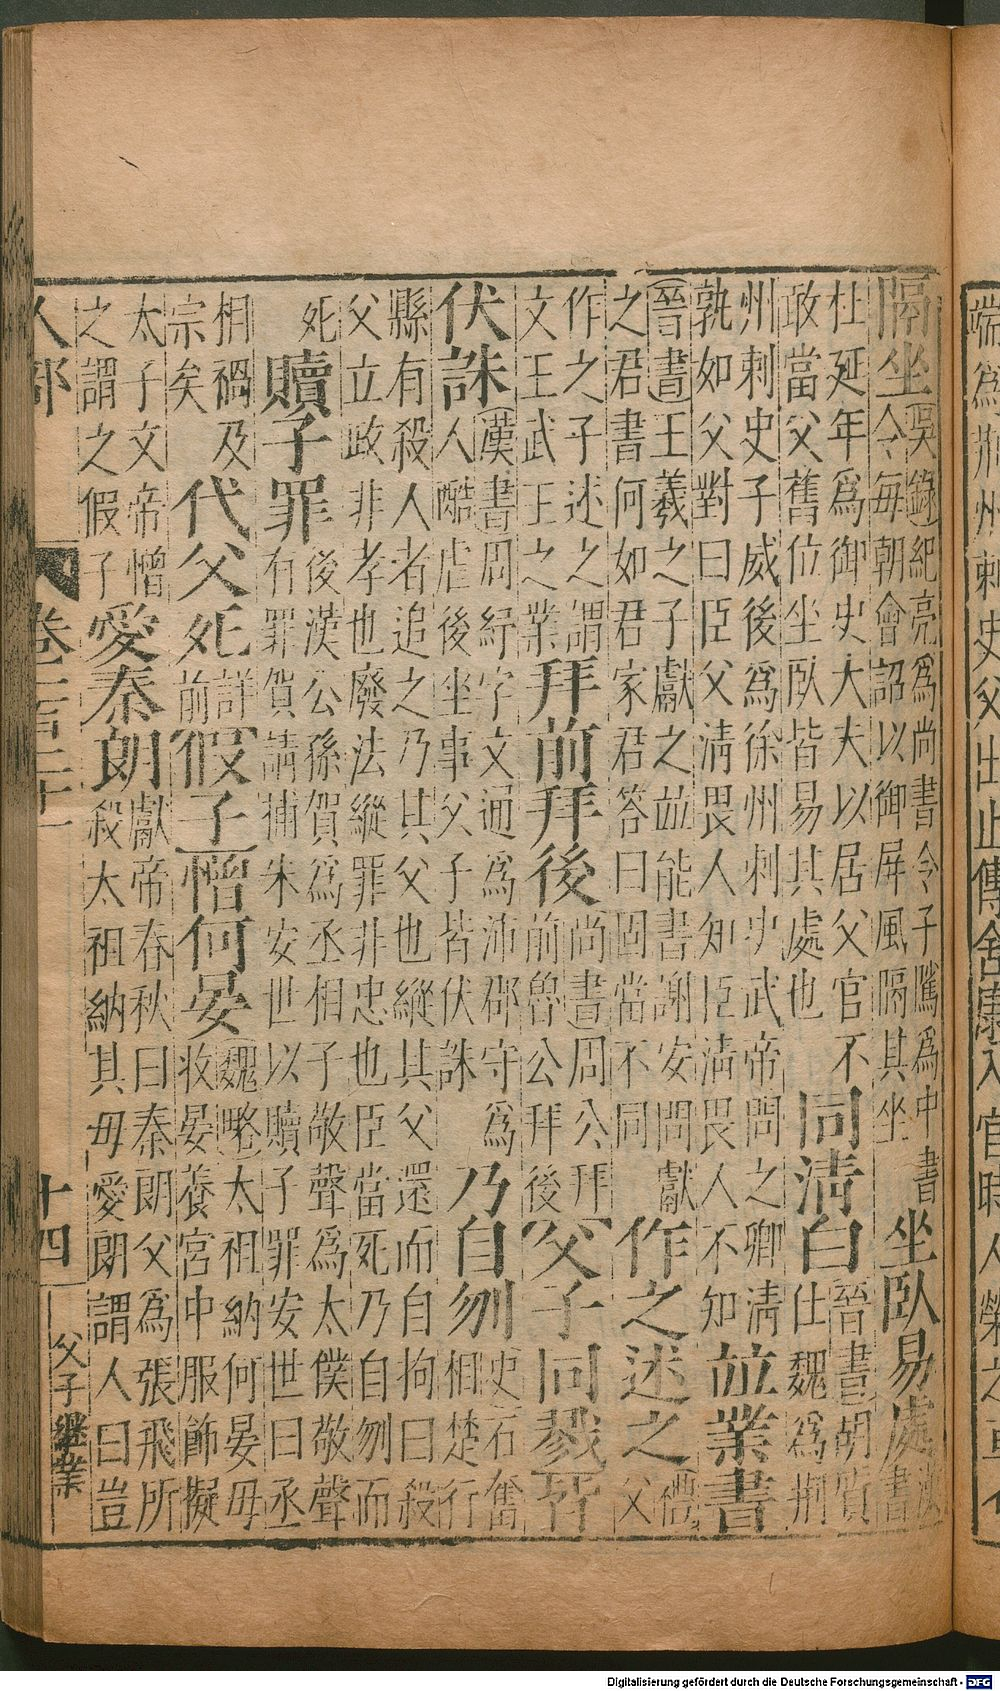 端爲荆州刺史父出止傳舍康入官時人榮之
隔坐 吳錄紀亮爲尚書令子隲爲中書
令每朝會詔以御屏風隔其坐 坐臥易處 漢書
杜延年爲御史大夫以居父官不
敢當父舊位坐臥皆易其處也 同清白 晉書胡質
仕魏爲荆
州刺史子威後爲徐州刺史武帝問之卿清
孰如父對曰臣父清畏人知臣清畏人不知 竝業書
晉書王羲之子獻之竝能書謝安問獻
之君書何如君家君答曰固當不同 作之述之 禮父
作之子述之謂
文王武王之業 拜前拜後 尚書周公拜
前魯公拜後 父子同戮
伏誅 漢書周紆字文通爲沛郡守爲
人酷虐後坐事父子皆伏誅 乃自刎 史石奮
相楚行
縣有殺人者追之乃其父也縱其父還而自拘曰殺
父立政非孝也廢法縱罪非忠也臣當死乃自刎而
死 贖子罪 後漢公孫賀爲丞相子敬聲爲太僕敬聲
有罪賀請捕朱安世以贖子罪安世曰丞
相禍及
宗矣 代父死 詳前 假子憎何晏 魏略太祖納何晏母
收晏養宮中服飾擬
太子文帝憎
之謂之假子 愛秦朗 獻帝春秋曰秦朗父爲張飛所
殺太祖納其母愛朗謂人曰豈
人部 卷二百二十 十四 父子繼業
Digitalisierung gefördert durch die Deutsche Forschungsgemeinschaft - DFG